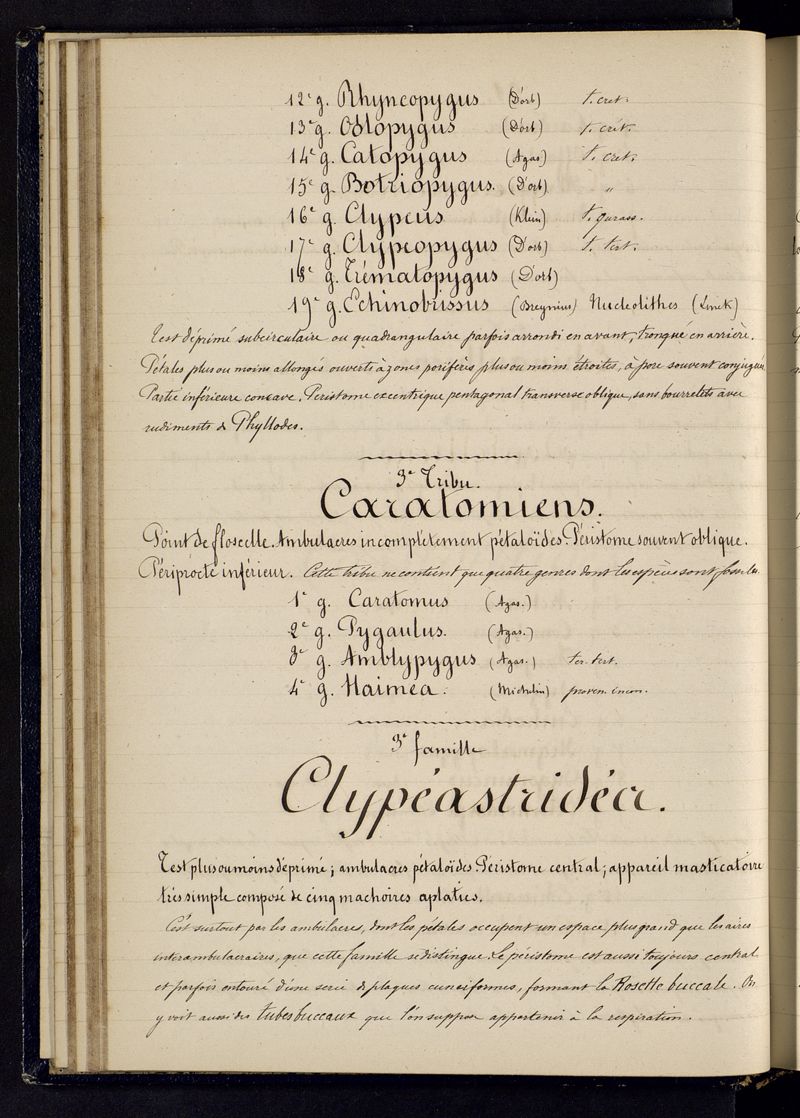 12e g. Rhyncopygus (D'orb) t. cret.
13e g. Oolopygus (D'orb) t. crét.
14e g. Catopygus (Agas) t. cret.
15e g. Botriopygus. (D'orb) "
16e g. Clypeus (Klein) t. jurass.
17e g. Clypeopygus (D'orb) t. tert.
18e g. Trématopygus (D'orb)
19e g. Echinobrissus (Breynius) Nucleolithes (Lmck)
Test déprimé subcirculaire ou quadrangulaire parfois arrondi en avant, tronqué en arrière.
Pétales plus ou moins allongés ouverts à zones porifères plus ou moins étroites, à pore souvent conjugués
Partie inférieure concave. Peristome excentrique pentagonal transverse oblique, sans bourrelets avec
rudiments de Phyllodes.
3e Tribu.
Caratomiens.
Point de floscelle. Ambulacres incomplètement pétaloïdes. Péristome souvent oblique.
Périprocte inférieur. Cette tribu ne contient que quatre genres dont les espèces sont fossiles
1e g. Caratomus (Agas.)
2e g. Pygaulus. (Agas.)
3e g. Amblypygus (Agas.) ter. tert.
4e g. Haimea. (Michelin) proven. incon.
3e famille
Clypéastridéa.
Test plus ou moins déprimé; ambulacres pétaloïdes. Péristome central; appareil masticatoire
très simple composé de cinq machoires aplaties.
C'est surtout par les ambulacres, dont les pétales occupent un espace plus grand que les aires
interambulacraires, que cette famille se distingue. Le péristome est aussi toujours central
et parfois entouré d'une serie de plaques cuneiformes, formant la Rosette buccale. On
y voit aussi des tubes buccaux que l'on suppose appartenir à la respiration.